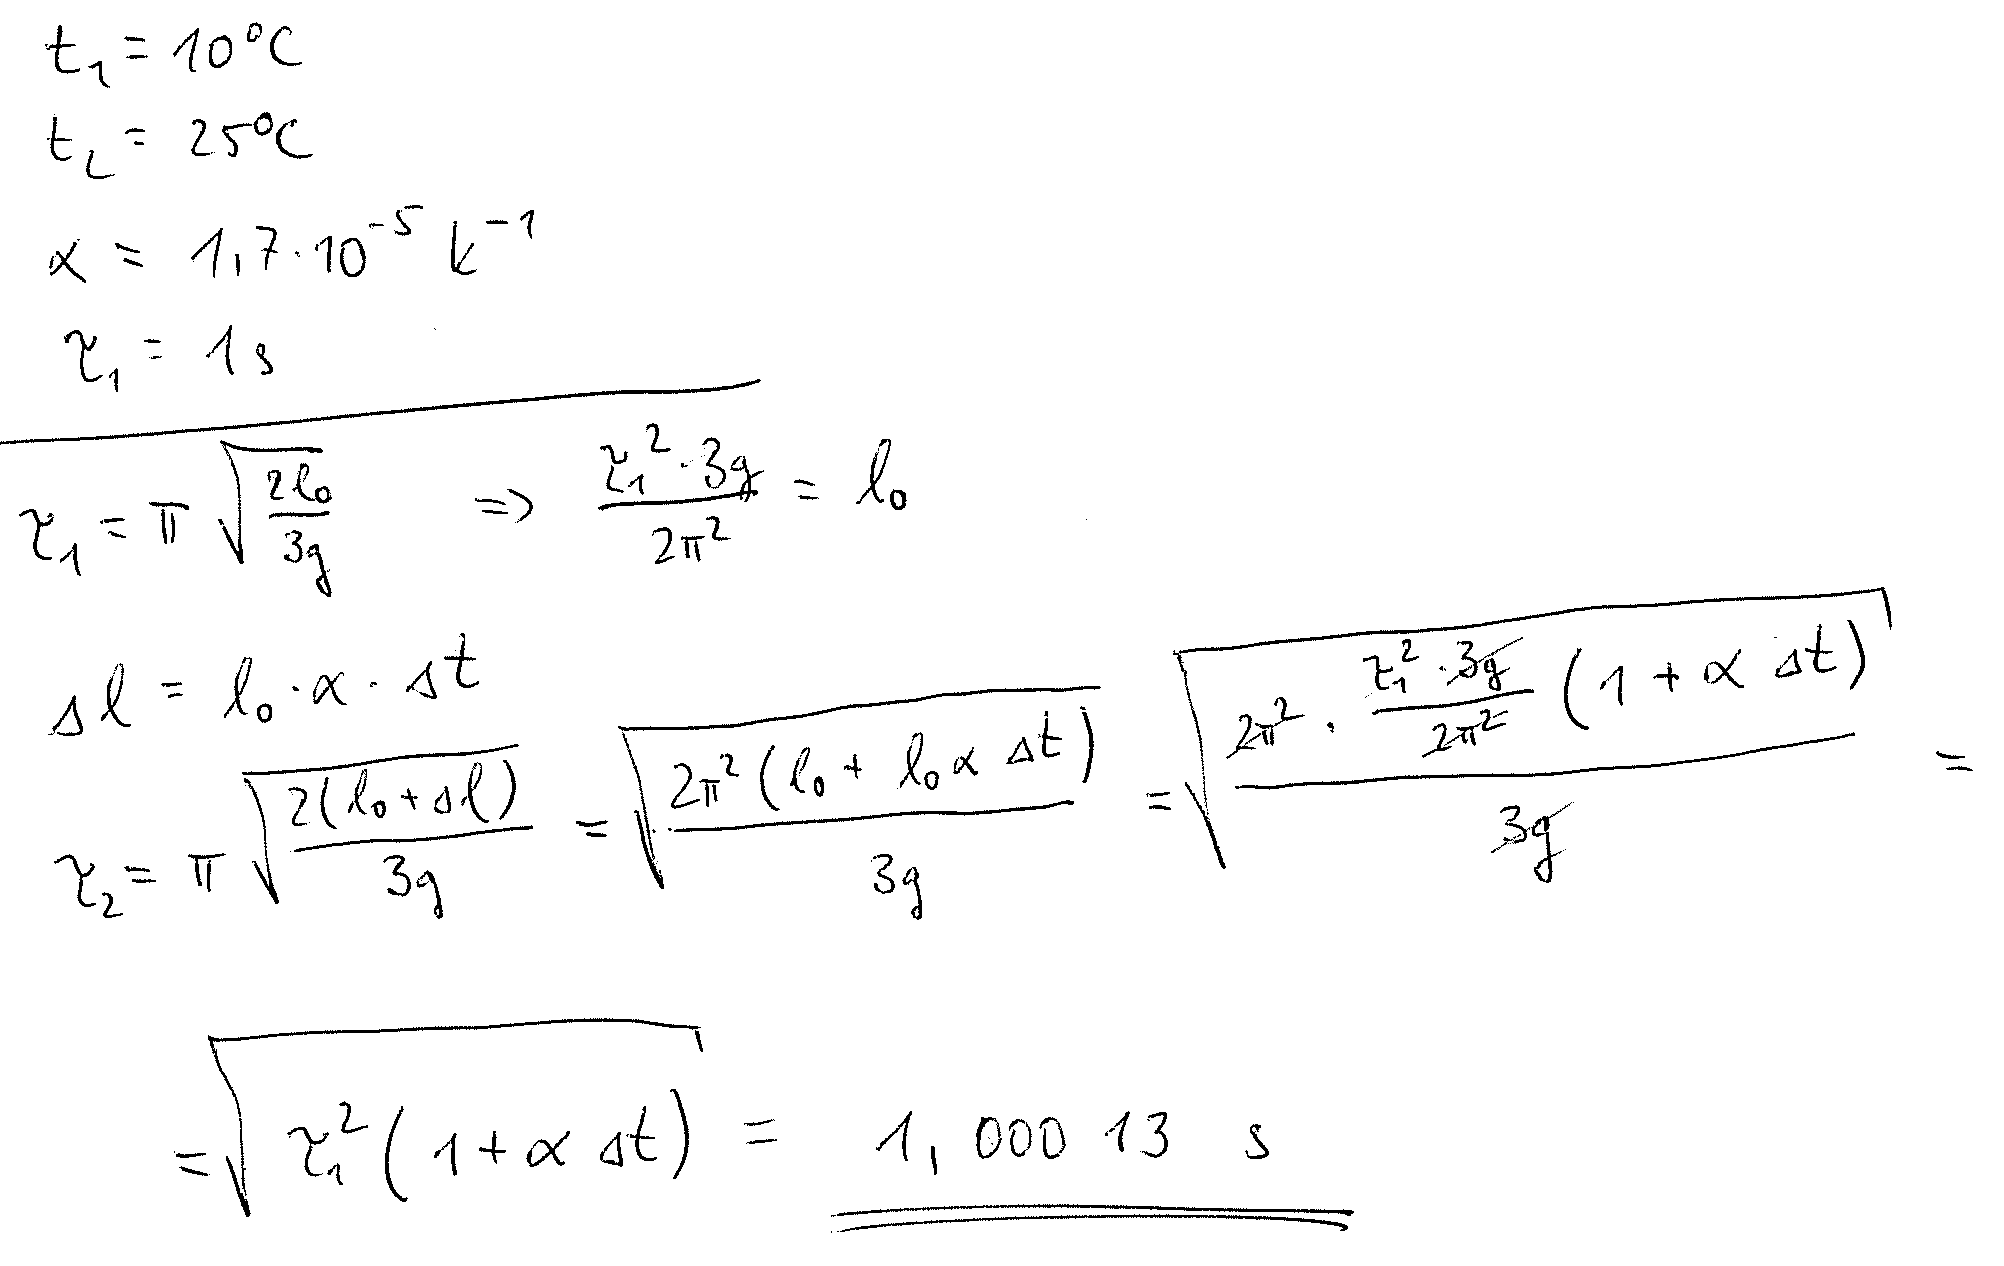 t₁ = 10°C
t₂ = 25°C
α = 1,7·10⁻⁵ k⁻¹
τ₁ = 1s
τ₁ = π √(2l₀/3g) => (τ₁²·3g)/(2π²) = l₀
Δl = l₀·α·Δt
τ₂ = π √(2(l₀+Δl)/3g) = √(2π²(l₀ + l₀α Δt)/3g) = √(2π² · (τ₁²·3g)/(2π²) (1 + α Δt)/3g) =
= √(τ₁²(1 + α Δt)) = 1,000 13 s